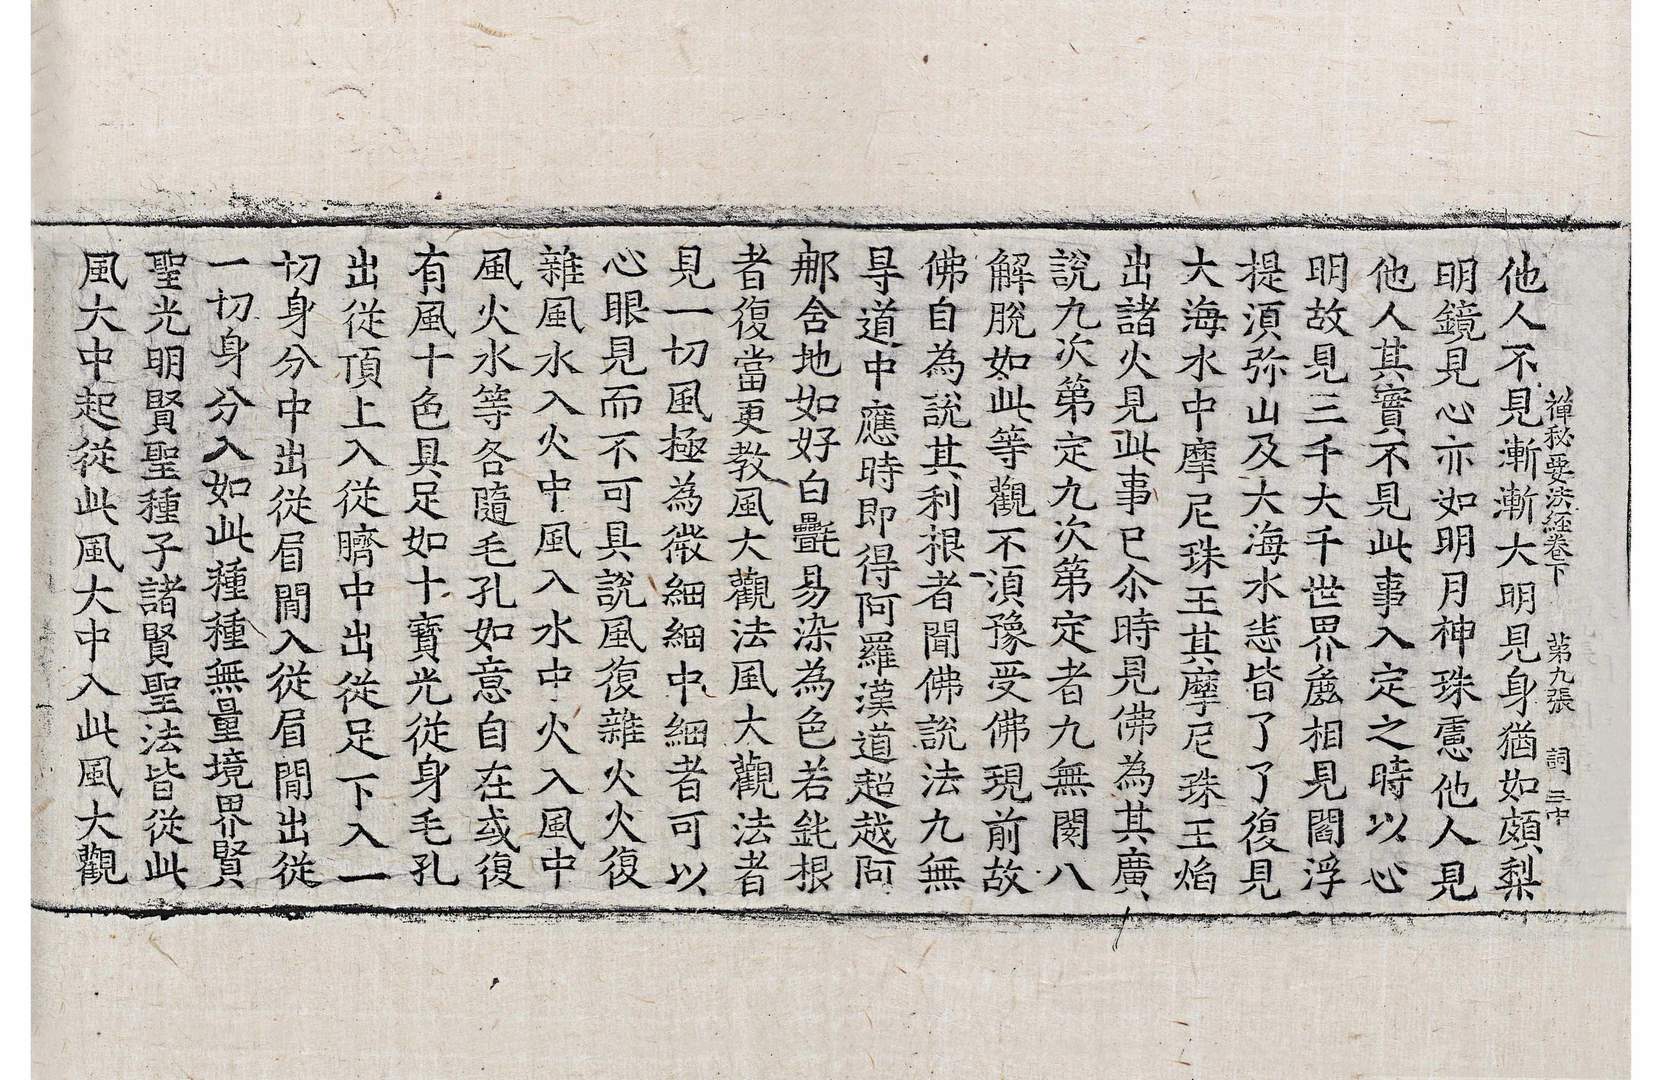 禪秘要法經卷下　第九張　詞　三中
他人不見漸漸大明見身猶如頗梨
明鏡見心亦如明月神珠慮他人見
他人其實不見此事入定之時以心
明故見三千大千世界麁相見閻浮
提湏弥山及大海水悉皆了了復見
大海水中摩尼珠王其摩尼珠王焰
出諸火見此事已尒時見佛為其廣
說九次第定九次第定者九無閡八
解脫如此等觀不湏豫受佛現前故
佛自為說其利根者聞佛說法九無
㝵道中應時即得阿羅漢道超越阿
那舍地如好白㲲易染為色若鈍根
者復當更教風大觀法風大觀法者
見一切風極為微細細中細者可以
心眼見而不可具說風復雜火火復
雜風水入火中風入水中火入風中
風火水等各隨毛孔如意自在或復
有風十色具足如十寶光從身毛孔
出從頂上入從臍中出從足下入一
切身分中出從眉間入從眉間出從
一切身分入如此種種無量境界賢
聖光明賢聖種子諸賢聖法皆從此
風大中起從此風大中入此風大觀